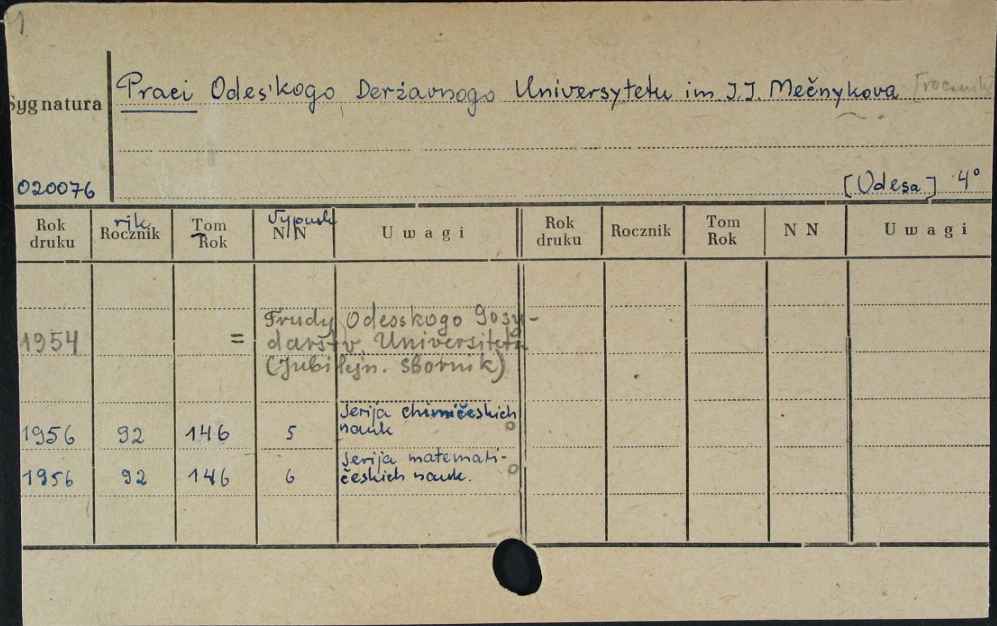 1
Sygnatura
Praci Odes'kogo Deržavnogo Universytetu im I.I. Mečnykova [rocznik]
020076
[Odesa] 4°
Rok druku rik Rocznik Tom Rok Vypusk NN Uwagi Rok druku Rocznik Tom Rok NN Uwagi
Trudy Odesskogo Gosu-
1954 = darstv. Universiteta
(Jubilejn. sbornik)
Serija chimičeskich
1956 92 146 5 nauk
Serija matemati-
1956 92 146 6 českich nauk.